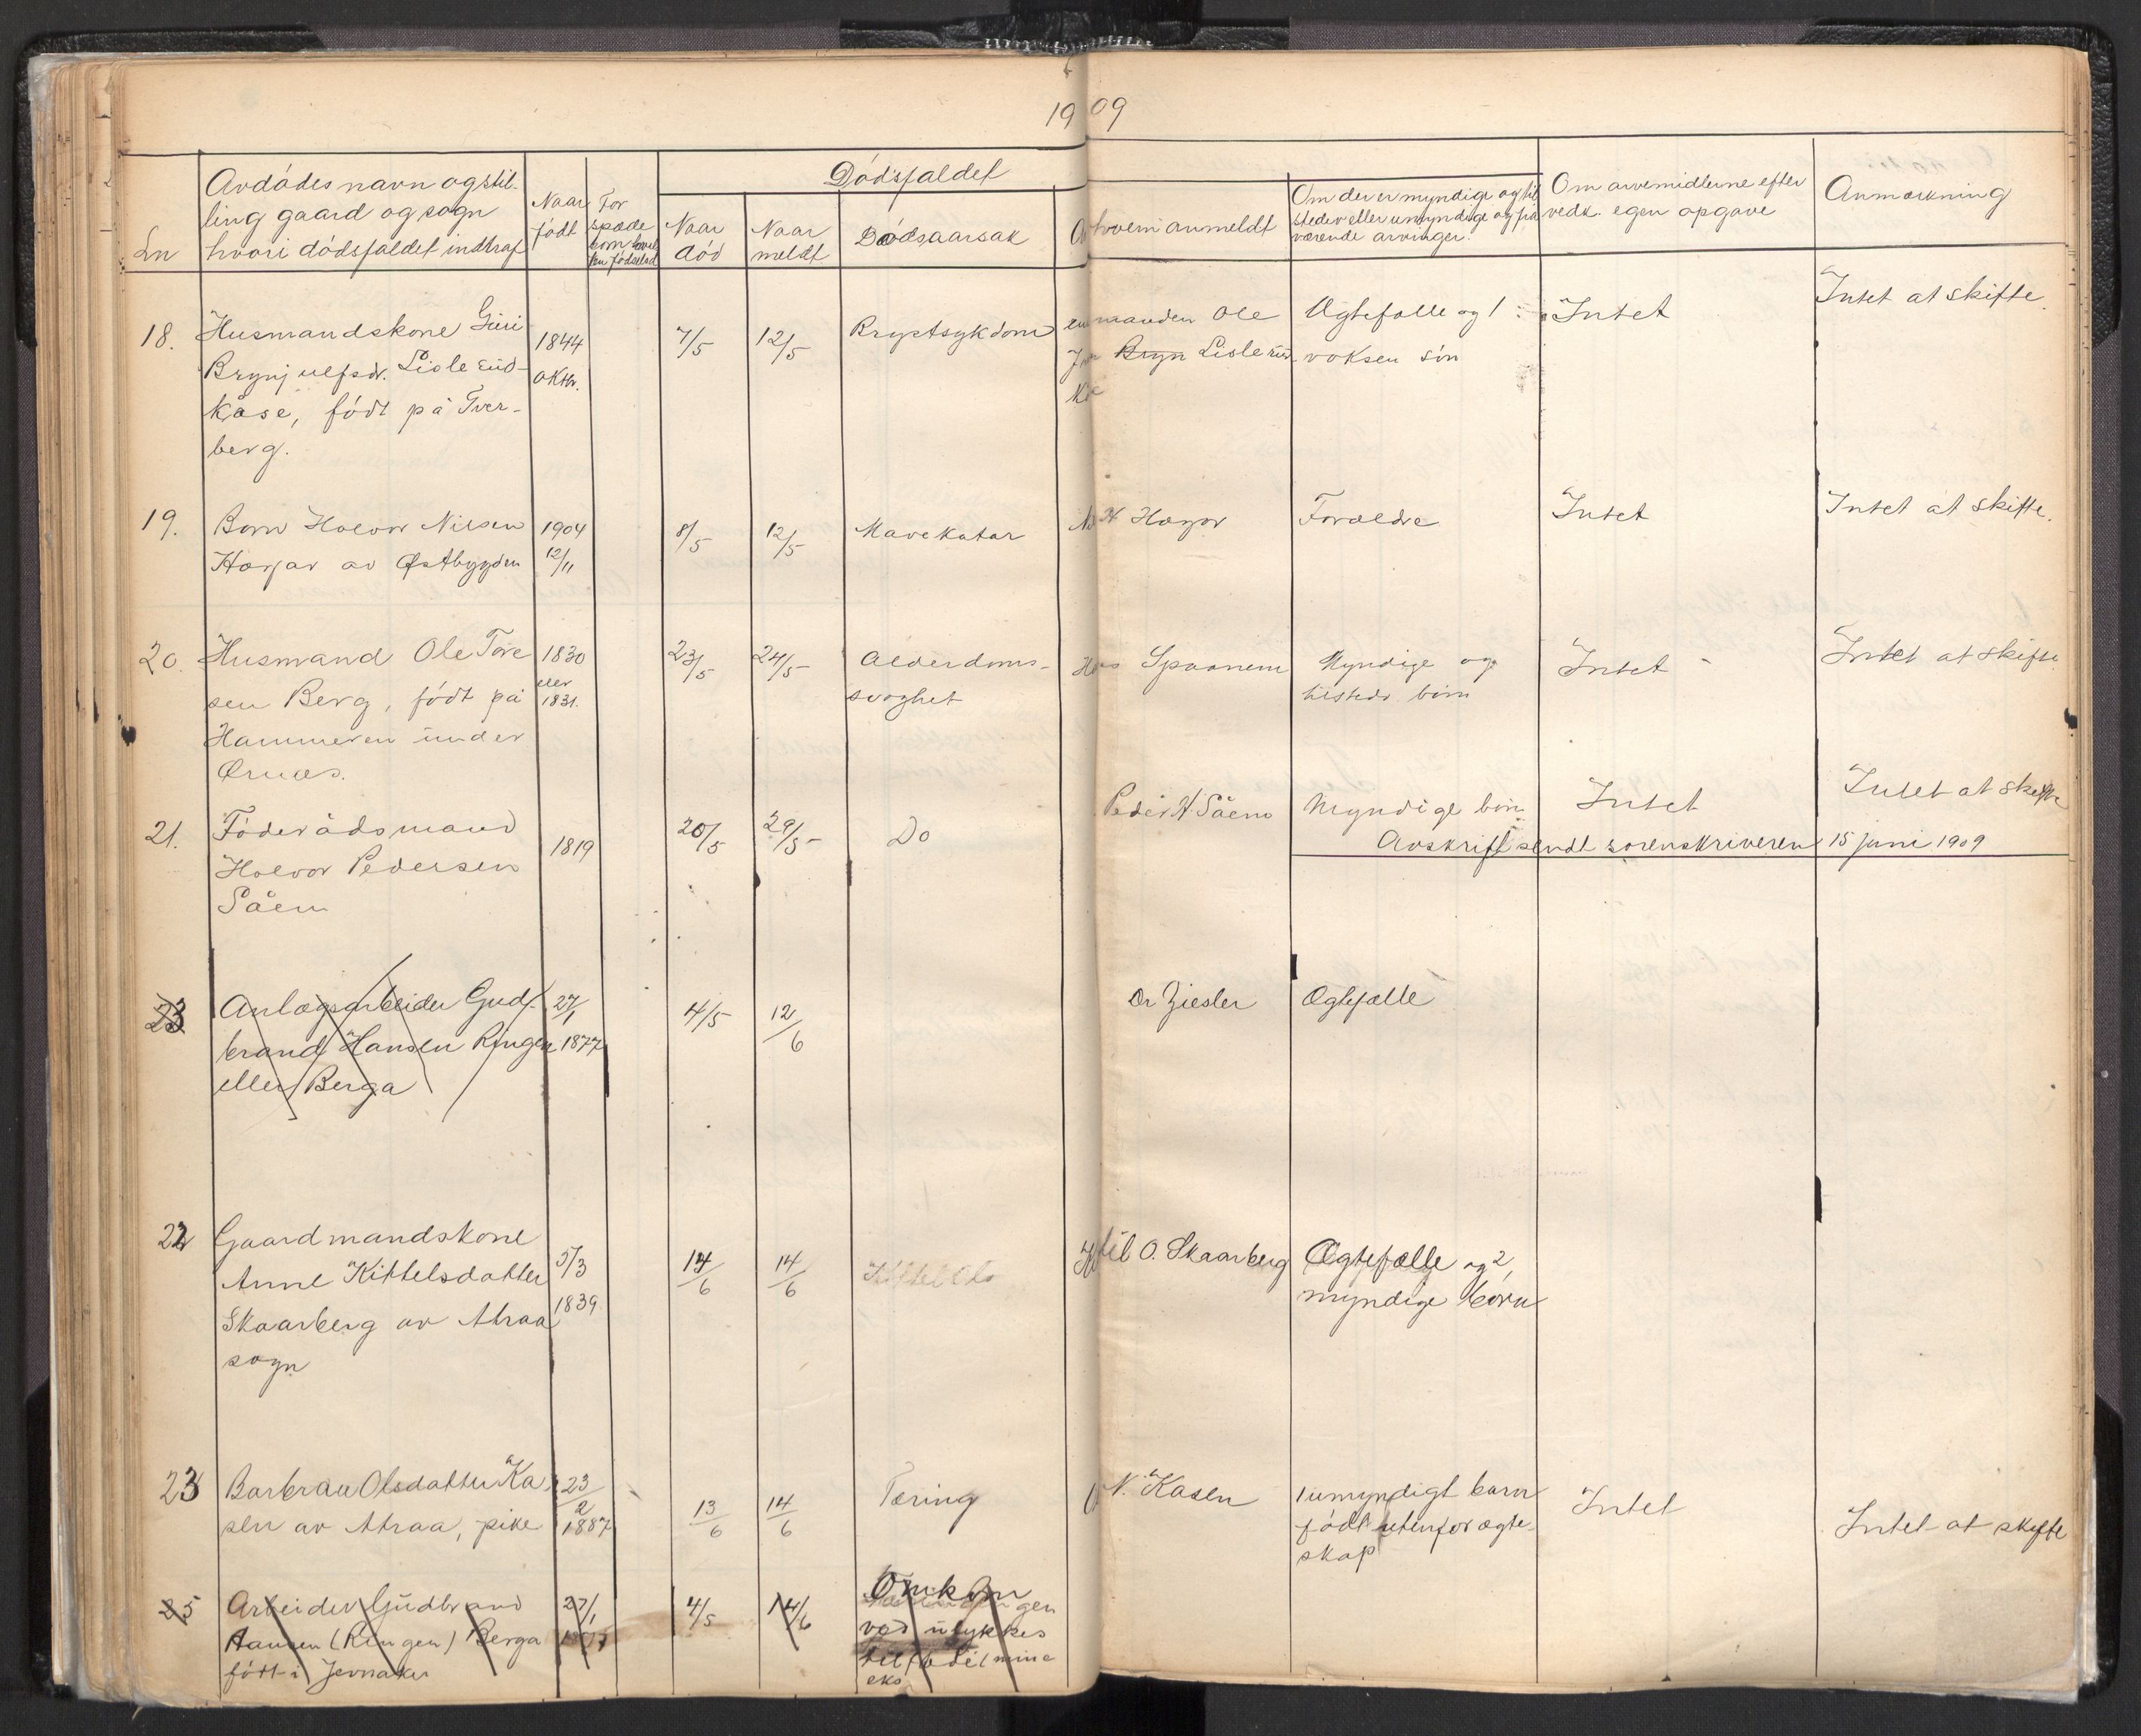 1909
Dødsfaldet
Ln
Avdødes navn og stil-
ling gaard og sogn
hvori dødsfaldet indtraf
Naar
født
For
spæde
Naar
død
Naar
meldt
Dødsaarsak
hvem anmeldt
Om der er myndige og til
stede eller umyndige og fra
værende arvinger.
Om arvemidlerne efter
vedk. egen opgave
Anmærkning
18.
Husmandskone Guri
Brynjulfsdr. Lisle Eud-
kåse, født på Tver-
berg.
1844
oktbr.
7/5
12/5
Brystsykdom
manden Ole
Bryn Lisleeud-
Ægtefælle og 1
voksen søn
Intet
Intet at skifte.
19.
Barn Halvor Nilsen
Hagjar av Østbygden
1904
12/11
8/5
12/5
Mavekatar
Forældre
Intet
Intet at skifte.
20.
Husmand Ole Tore
sen Berg, født på
Hammeren under
Ørnæs.
1830
eller
1831.
23/5
24/5
Alderdoms-
svaghet
Spaanem
Myndige og
tilstedev. børn
Intet
Intet at skifte
21.
Føderådsmand
Halvor Pedersen
Såem
1819
20/5
29/5
Do
Peder H. Såem
Myndige børn
Intet
Intet at skifte
Avskrift sendt sorenskriveren 15 juni 1909
23
Anlægsarbeider Gud-
brand Hansen Ringen
eller Berga
27/1
1877
4/5
12/6
Dr Ziesler
Ægtefælle
22
Gaardmandskone
Anne Kittelsdatter
Skaarberg av Atraa
sogn
5/3
1839
14/6
14/6
Kittel O. Skaarberg
Ægtefælle og 2
myndige børn
23
Barbrau Olsdatter Kå
sen av Atraa, pike
23/2
1887
13/6
14/6
Tæring
N. Kåsen
1 umyndigt barn
født utenfor ægte-
skap
Intet
Intet at skifte
25
Arbeider Gudbrand
Hansen (Ringen) Berga
født i Jevnaker
27/1
4/5
14/6
Omkom
ved ulykkes